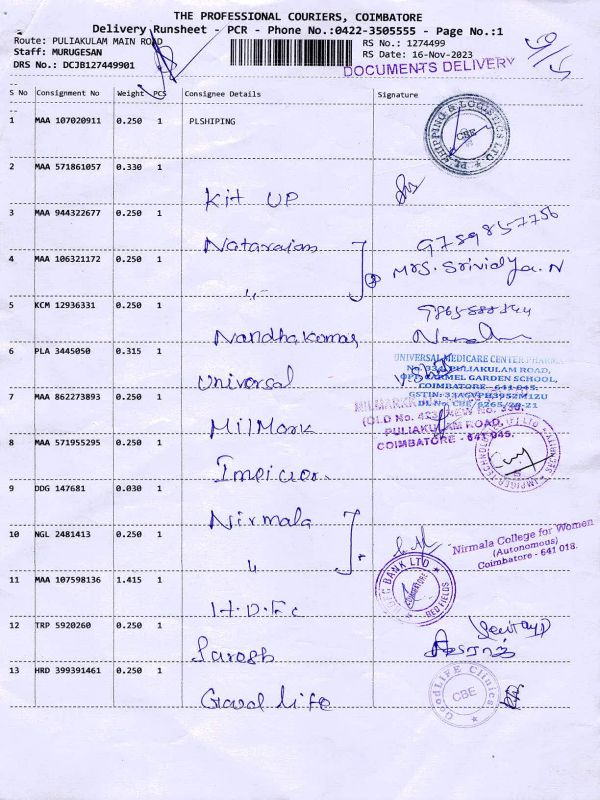 THE PROFESSIONAL COURIERS, COIMBATORE
Delivery Runsheet - PCR - Phone No.:0422-3505555 - Page No.:1
Route: PULIAKULAM MAIN ROAD
Staff: MURUGESAN
DRS No.: DCJB127449901
RS No.: 1274499
RS Date: 16-Nov-2023
DOCUMENTS DELIVERY
S No Consignment No Weight PCS Consignee Details Signature
1 MAA 107020911 0.250 1 PLSHIPING
PL SHIPPING & LOGISTICS LTD
CBE
2 MAA 571861057 0.330 1
Kit UP
3 MAA 944322677 0.250 1
Natarajan
9789857756
4 MAA 106321172 0.250 1
Mrs. Srividya.N
5 KCM 12936331 0.250 1
Nandhakumar
6 PLA 3445050 0.315 1
Universal
UNIVERSAL MEDICARE CENTER PHARMA
PULIAKULAM ROAD,
OPP. CARMEL GARDEN SCHOOL,
COIMBATORE - 641 045.
7 MAA 862273893 0.250 1
MilMark
(OLD No. 423, NEW No. 330,
PULIAKULAM ROAD,
COIMBATORE - 641 045.
8 MAA 571955295 0.250 1
9 DDG 147681 0.030 1
Nirmala
10 NGL 2481413 0.250 1
Nirmala College for Women
(Autonomous)
Coimbatore - 641 018.
11 MAA 107598136 1.415 1
H.D.F.C
BANK LTD
COIMBATORE
RED FIELDS
12 TRP 5920260 0.250 1
Suresh
13 HRD 399391461 0.250 1
Good Life
GoodLIFE Clinics
CBE